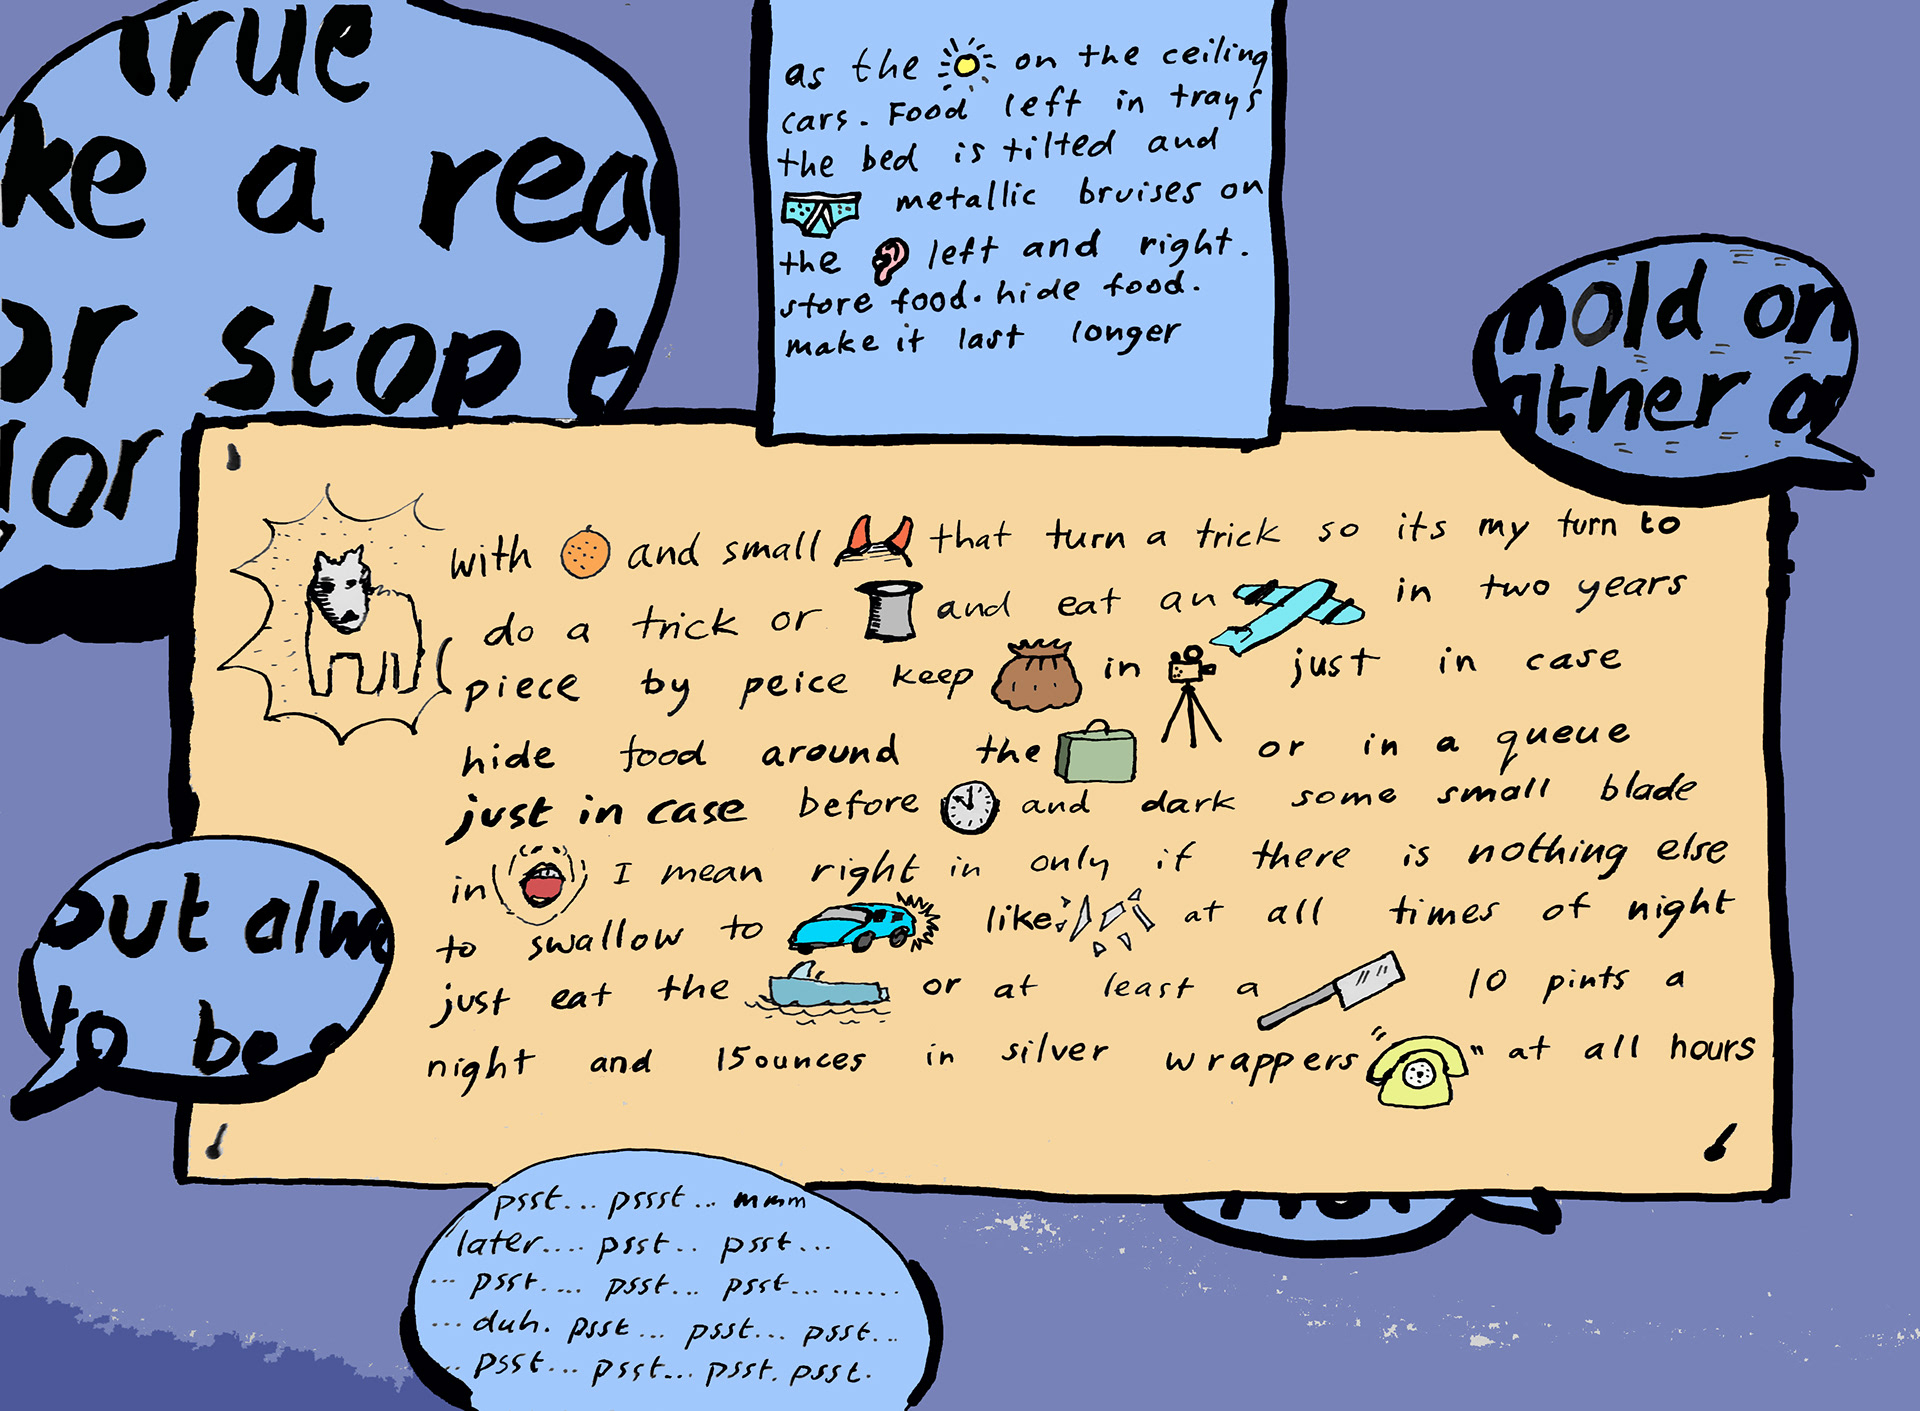 True
a
or stop
for
as the on the ceiling
cars. Food left in trays
the bed is tilted and
metallic bruises on
the left and right.
store food. hide food.
make it last longer
hold on
with and small that turn a trick so its my turn to
do a trick or and eat an in two years
piece by peice keep in just in case
hide food around the or in a queue
just in case before and dark some small blade
in I mean right in only if there is nothing else
to swallow to like at all times of night
just eat the or at least a 10 pints a
night and 15 ounces in silver wrappers at all hours
but
to be
psst... pssst... mmm
later.... psst.. psst...
... psst.... psst... psst.........
... duh. psst... psst... psst...
.. psst... psst... psst. psst.